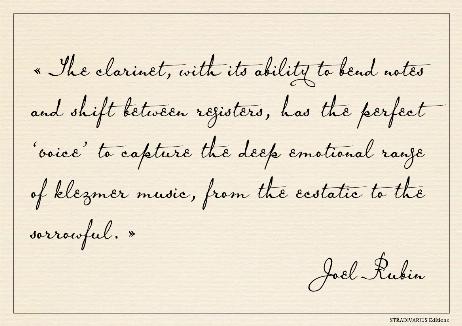 « The clarinet, with its ability to bend notes
and shift between registers, has the perfect
‘voice’ to capture the deep emotional range
of klezmer music, from the ecstatic to the
sorrowful. »
Joel Rubin
STRADIVARIUS Editions